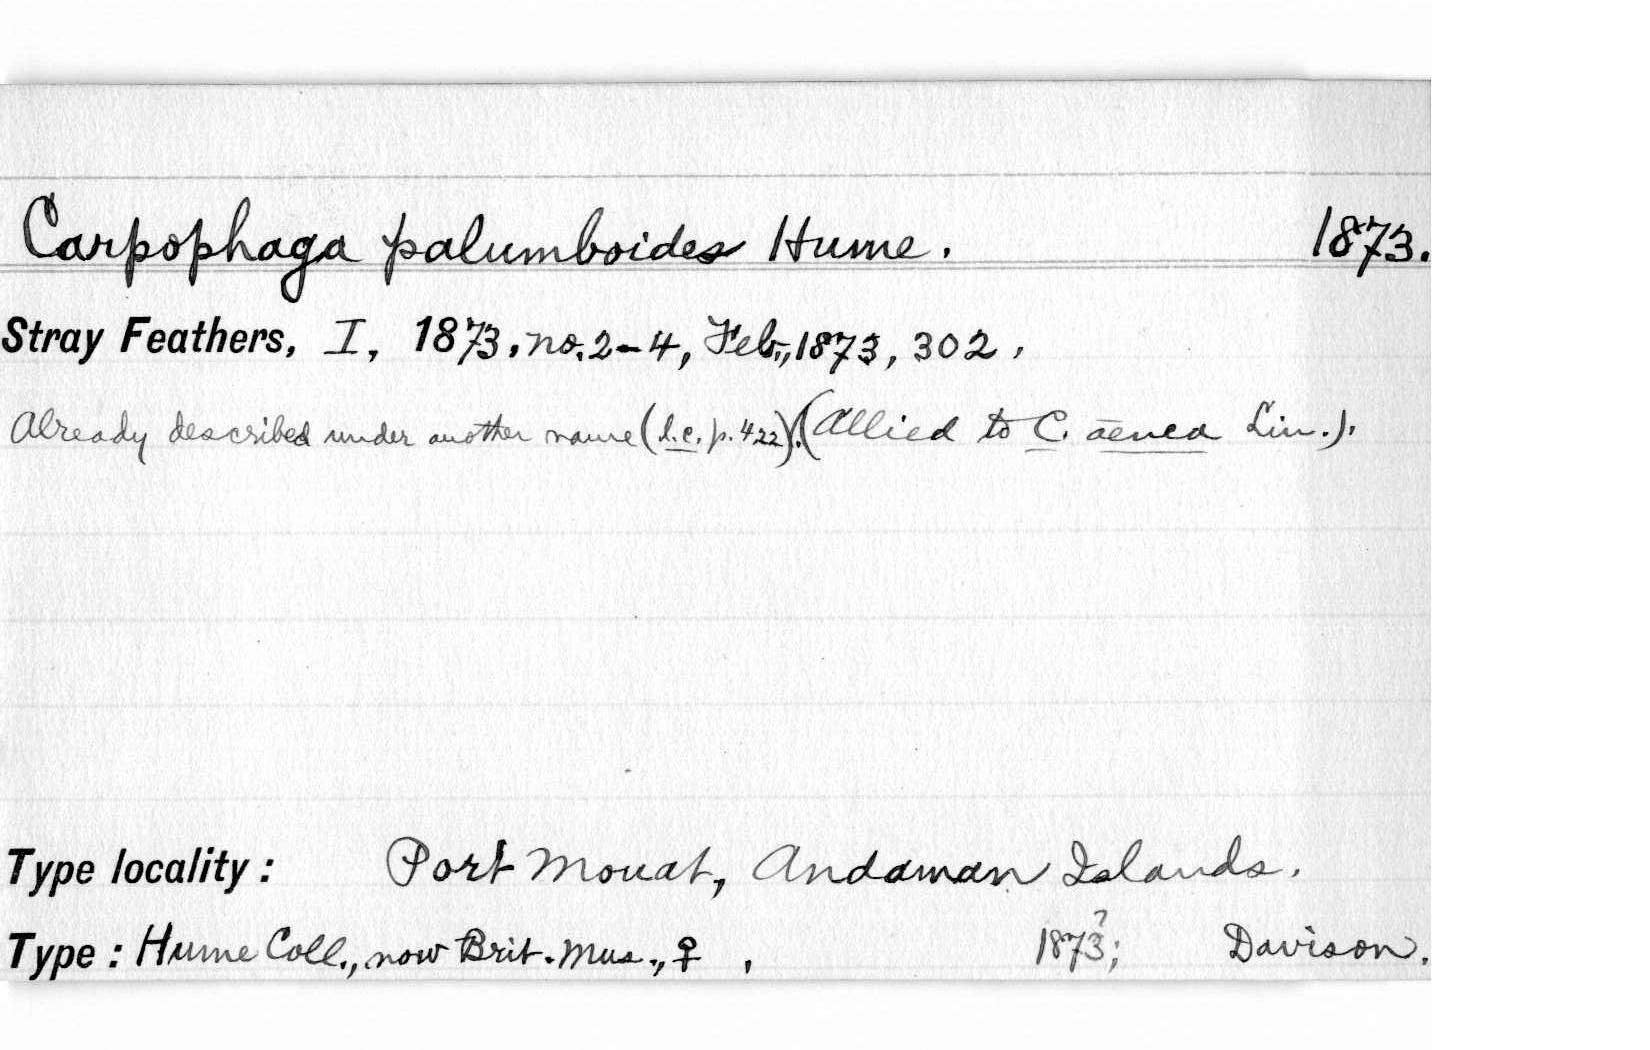 Carpophaga palumboides Hume. 1873.
Stray Feathers, I, 1873, no. 2-4, Feb., 1873, 302,
Already described under another name (l.c. p. 422). (Allied to C. aenea Lin.).
Type locality: Port Mouat, Andaman Islands.
Type: Hume Coll., now Brit. Mus., ♀ , 1873?; Davison.